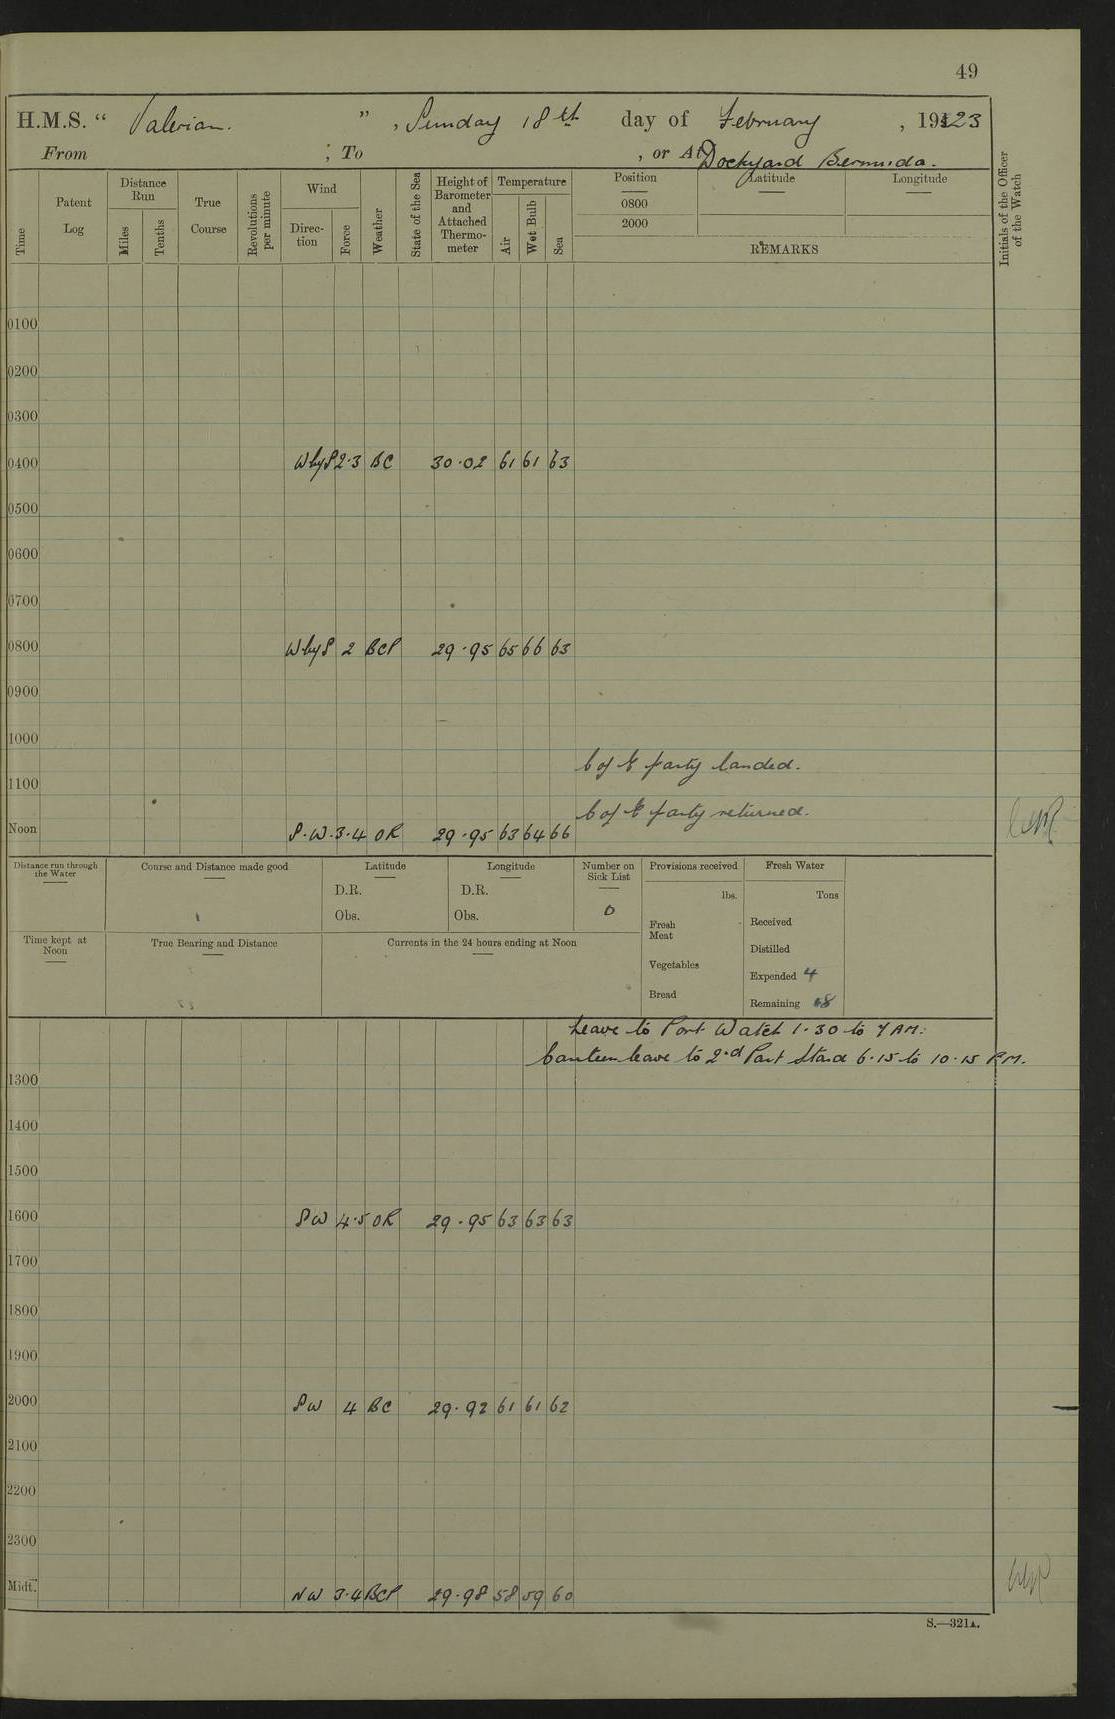 49
H.M.S. “ Valerian. ” , Sunday 18th day of February , 1923
From ; To , or At Dockyard Bermuda.
Time
Patent Log
Distance Run
Miles
Tenths
True Course
Revolutions per minute
Wind
Direction
Force
Weather
State of the Sea
Height of Barometer and Attached Thermometer
Temperature
Air
Wet Bulb
Sea
Position Latitude Longitude
0800
2000
REMARKS
Initials of the Officer of the Watch
0100
0200
0300
0400 W by S 2·3 BC 30·02 61 61 63
0500
0600
0700
0800 W by S 2 BCP 29·95 65 66 63
0900
1000
C of E party landed.
1100
C of E party returned.
Noon S.W. 3·4 OR 29·95 63 64 66
Distance run through the Water
Course and Distance made good
Latitude
D.R.
Obs.
Longitude
D.R.
Obs.
Number on Sick List
0
Provisions received
lbs.
Fresh Meat
Vegetables
Bread
Fresh Water
Tons
Received
Distilled
Expended 4
Remaining 68
Time kept at Noon
True Bearing and Distance
Currents in the 24 hours ending at Noon
Leave to Port Watch 1·30 to 7 AM.
Canteen leave to 2nd Part Stard 6·15 to 10·15 P.M.
1300
1400
1500
1600 SW 4·5 OR 29·95 63 63 63
1700
1800
1900
2000 SW 4 BC 29·92 61 61 62
2100
2200
2300
Midt. NW 3·4 BCP 29·98 58 59 60
S.—321A.